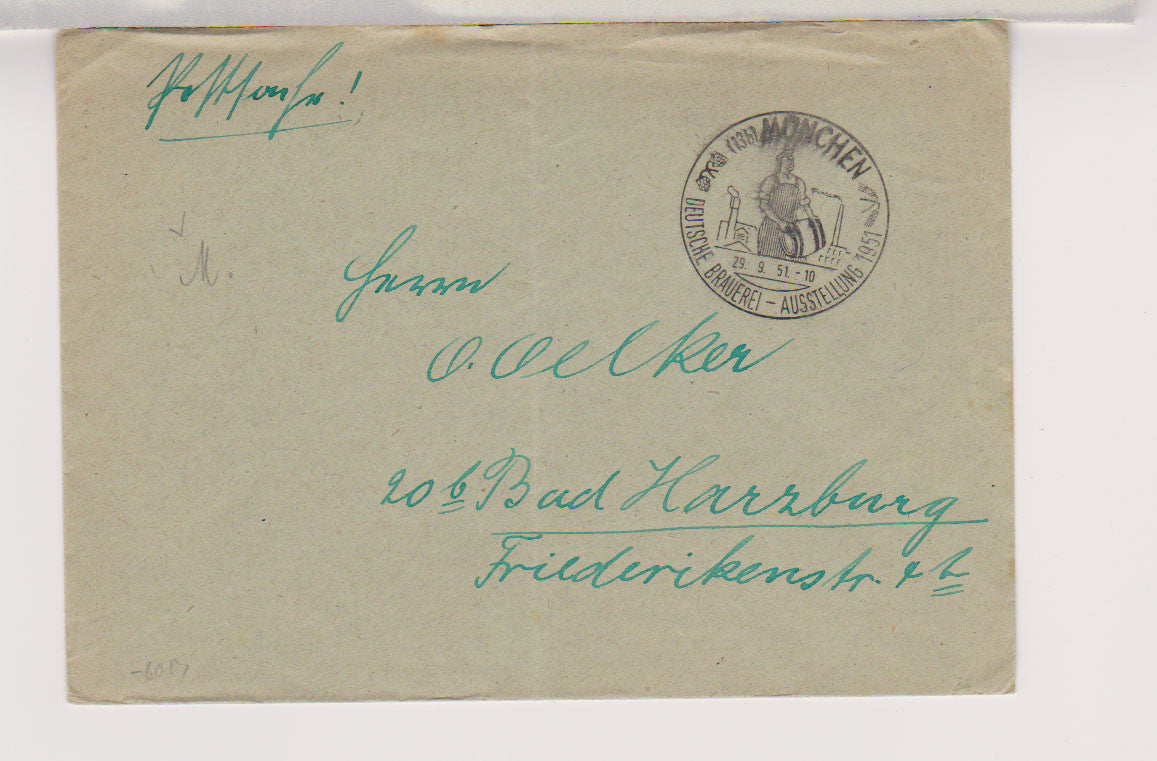 Postsache!
(13b) MÜNCHEN
DEUTSCHE BRAUEREI - AUSSTELLUNG 1951
29. 9. 51. - 10
M.
Herrn
O. Oelker
20b Bad Harzburg
Friederikenstr.